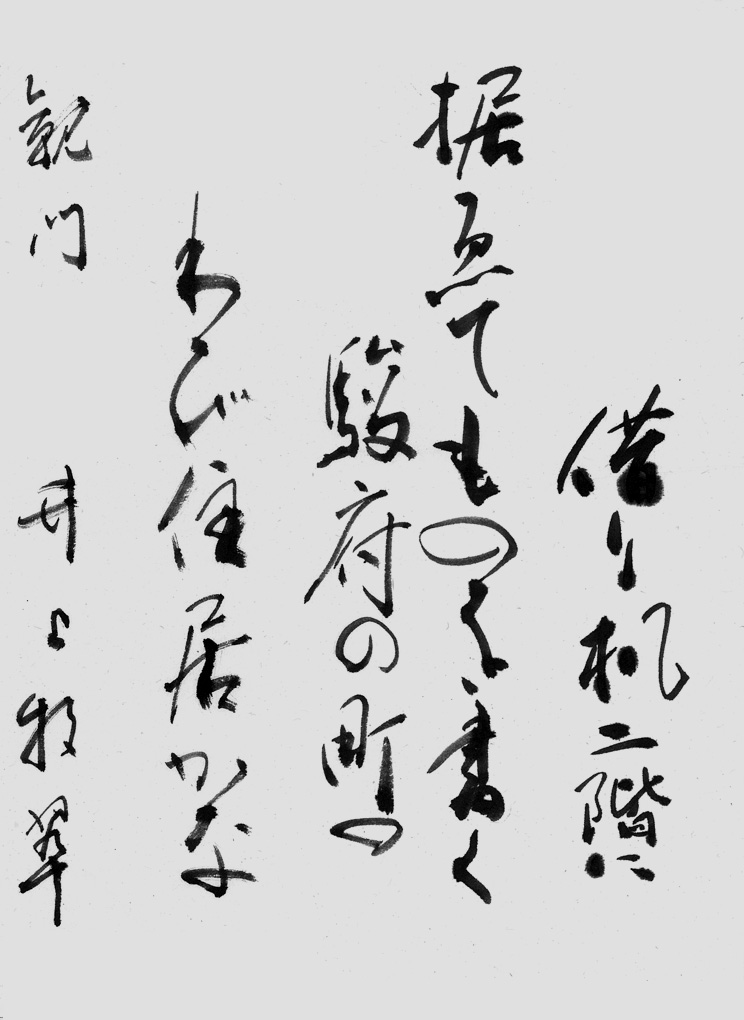 借り机二階に
据ゑてものを書く
駿府の町の
わび住居かな
観門　井上牧翠